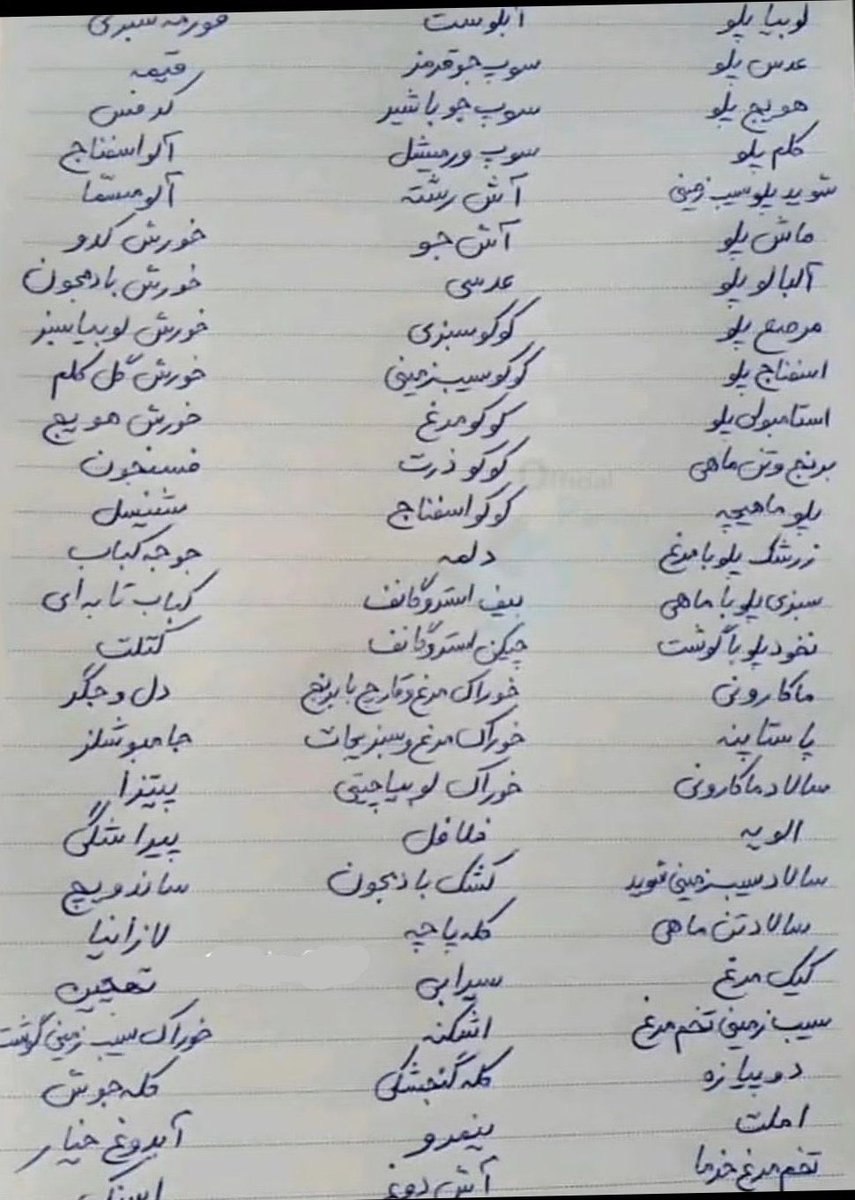 لوبیا پلو آبگوشت قورمه سبزی
عدس پلو سوپ جو قرمز قیمه
هویج پلو سوپ جو با شیر کرفس
کلم پلو سوپ ورمیشل آلو اسفناج
شوید پلو سیب زمینی آش رشته آلو مسمّا
ماش پلو آش جو خورش کدو
آلبالو پلو عدسی خورش بادمجون
مرصع پلو کوکو سبزی خورش لوبیا سبز
اسفناج پلو کوکو سیب زمینی خورش گل کلم
استامبولی پلو کوکو مرغ خورش هویج
برنج و تن ماهی کوکو ذرت فسنجون
پلو ماهیچه کوکو اسفناج شنیسل
زرشک پلو با مرغ دلمه جوجه کباب
سبزی پلو با ماهی بیف استروگانف کباب تابه ای
نخود پلو با گوشت چیکن استروگانف کتلت
ماکارونی خوراک مرغ و قارچ با برنج دل و جگر
پاستا پنه خوراک مرغ و سبزیجات
سالاد ماکارونی خوراک لوبیا چیتی پیتزا
الویه فلافل پیراشکی
سالاد سیب زمینی شوید کشک بادمجون ساندویچ
سالاد تن ماهی کله پاچه لازانیا
کیک مرغ سیرابی تهچین
سیب زمینی تخم مرغ اشکنه خوراک سیب زمینی گوشت
دوپیازه کله گنجشکی کله جوش
املت نیمرو آبدوغ خیار
تخم مرغ خرما آش دوغ